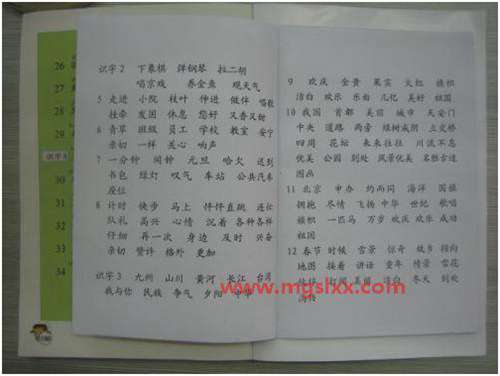 26
27
28
29
识字3
30
31
32
33
34
识字2 下象棋 弹钢琴 拉二胡
唱京戏 养金鱼 观天气
5 走进 小院 枝叶 伸进 做伴 唱歌
往牵 发困 休息 您好 又香又甜
6 青草 班级 员工 学校 教室 安宁
亲切 一样 关心 响声
7 一分钟 闹钟 元旦 哈欠 迟到
书包 绿灯 叹气 车站 公共汽车
座位
8 计时 快步 马上 怦怦直跳 连忙
队礼 高兴 心情 沉着 各种各样
仔细 再一次 身边 及时 兴奋
亲切 赞许 格外 更加
识字3 九州 山川 黄河 长江 台湾
我与你 民族 争气 夕阳 中华
9 欢庆 金黄 果实 火红 旗帜
洁白 欢乐 乐曲 儿忆 美好 祖国
10 我国 首都 美丽 城市 天安门
中央 道路 两旁 绿树成荫 立交桥
四周 花坛 来来往往 川流不息
优美 公园 到处 风景优美 名胜古迹
图画
11 北京 申办 约而同 海洋 国旗
拥抱 尽情 飞扬 中华 世纪 歌唱
旗帜 一匹马 万步 欢庆 欢乐 成功
祖国
12 春节 时候 雪景 惊奇 故乡 转向
地图 接着 讲话 童年 情景 雪花
红 美丽 洁白 冬天 到处
www.mgslxx.com